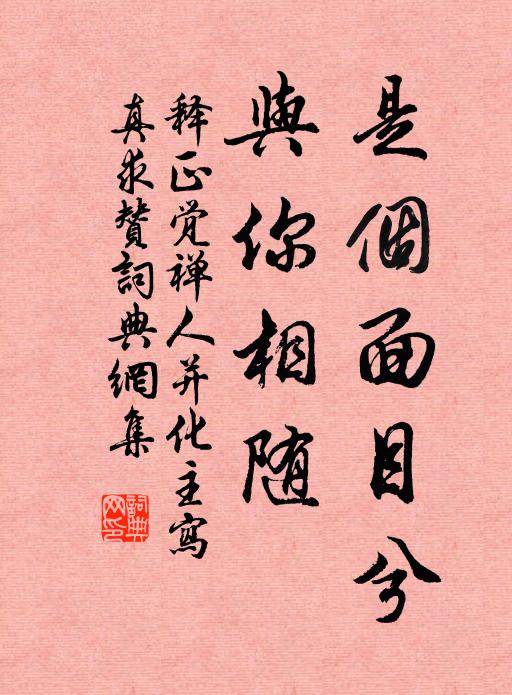 是個面目兮
與你相随
释正覚禅人并化主寫
真求賛詞典網集
詞典网印